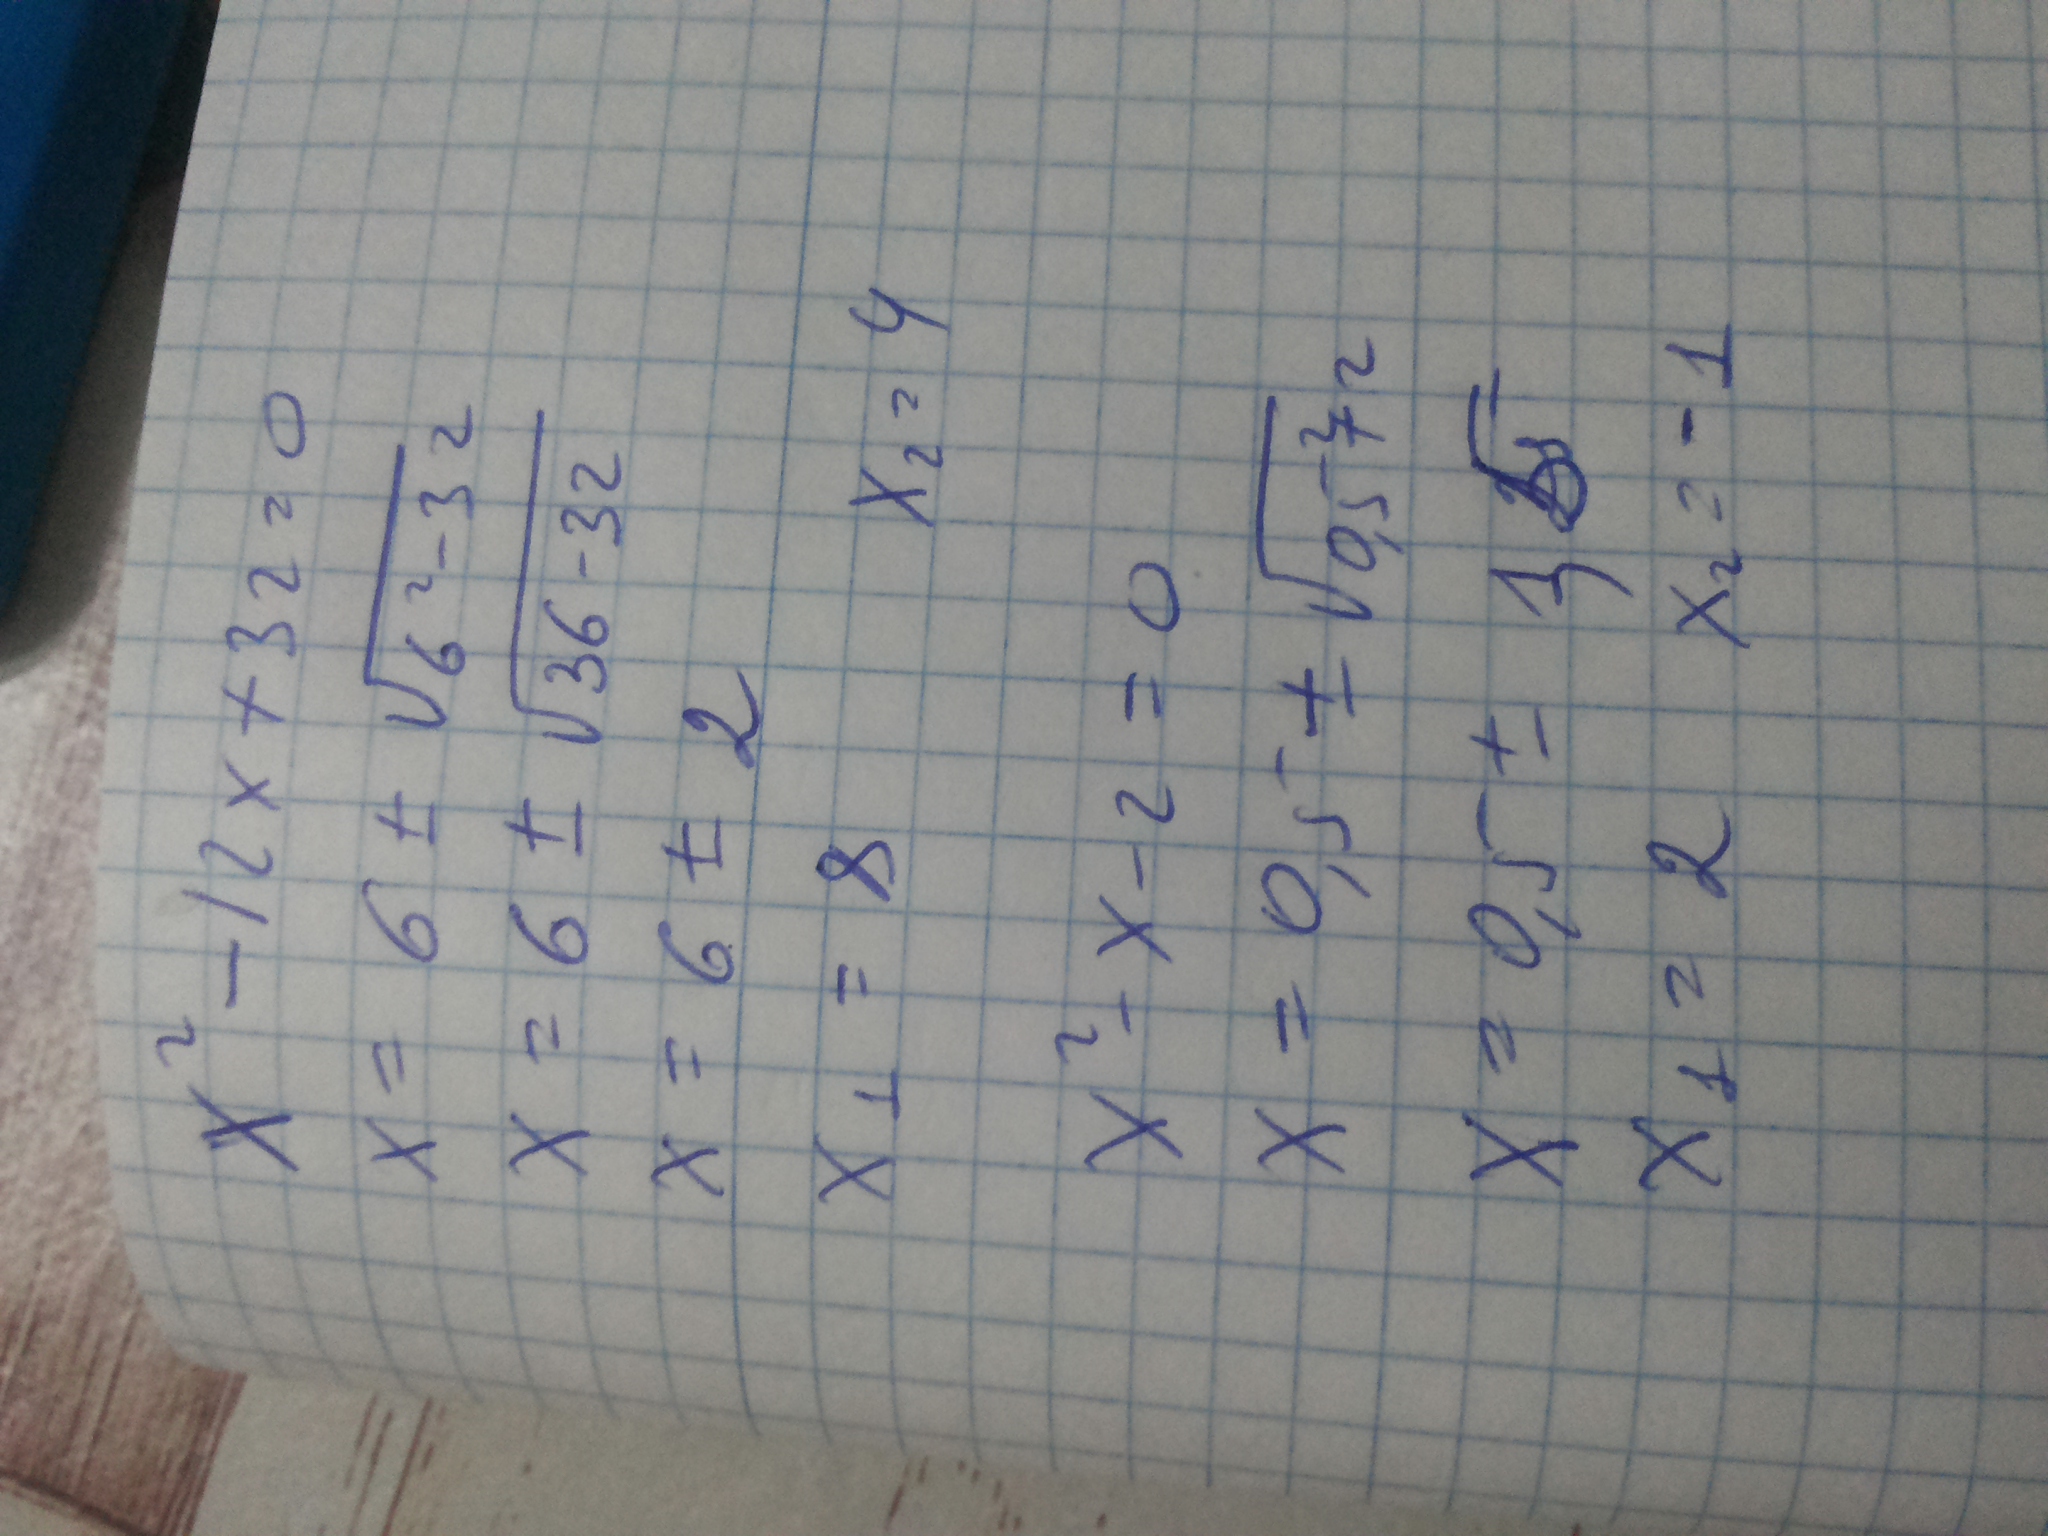 x² - 12x + 32 = 0
x = 6 ± √(6² - 32)
x = 6 ± √(36 - 32)
x = 6 ± 2
x₁ = 8 x₂ = 4
x² - x - 2 = 0
x = 0,5 ± √(0,5² + 2)
x = 0,5 ± 1,5
x₁ = 2 x₂ = -1